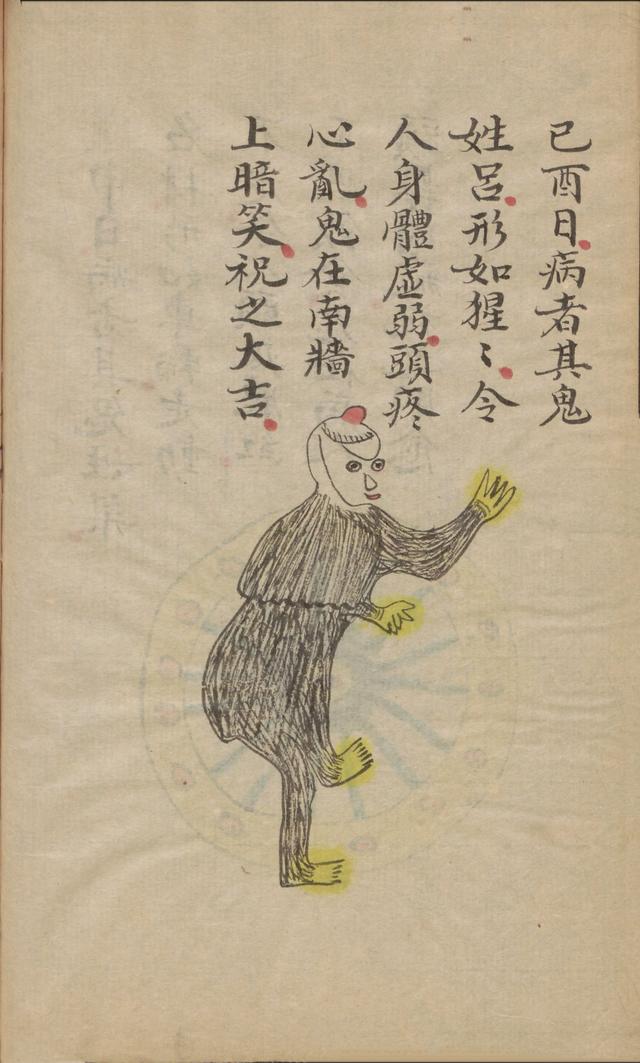 己酉日病者其鬼
姓呂形如猩〻令
人身體虛弱頭疼
心亂鬼在南牆
上暗笑祝之大吉